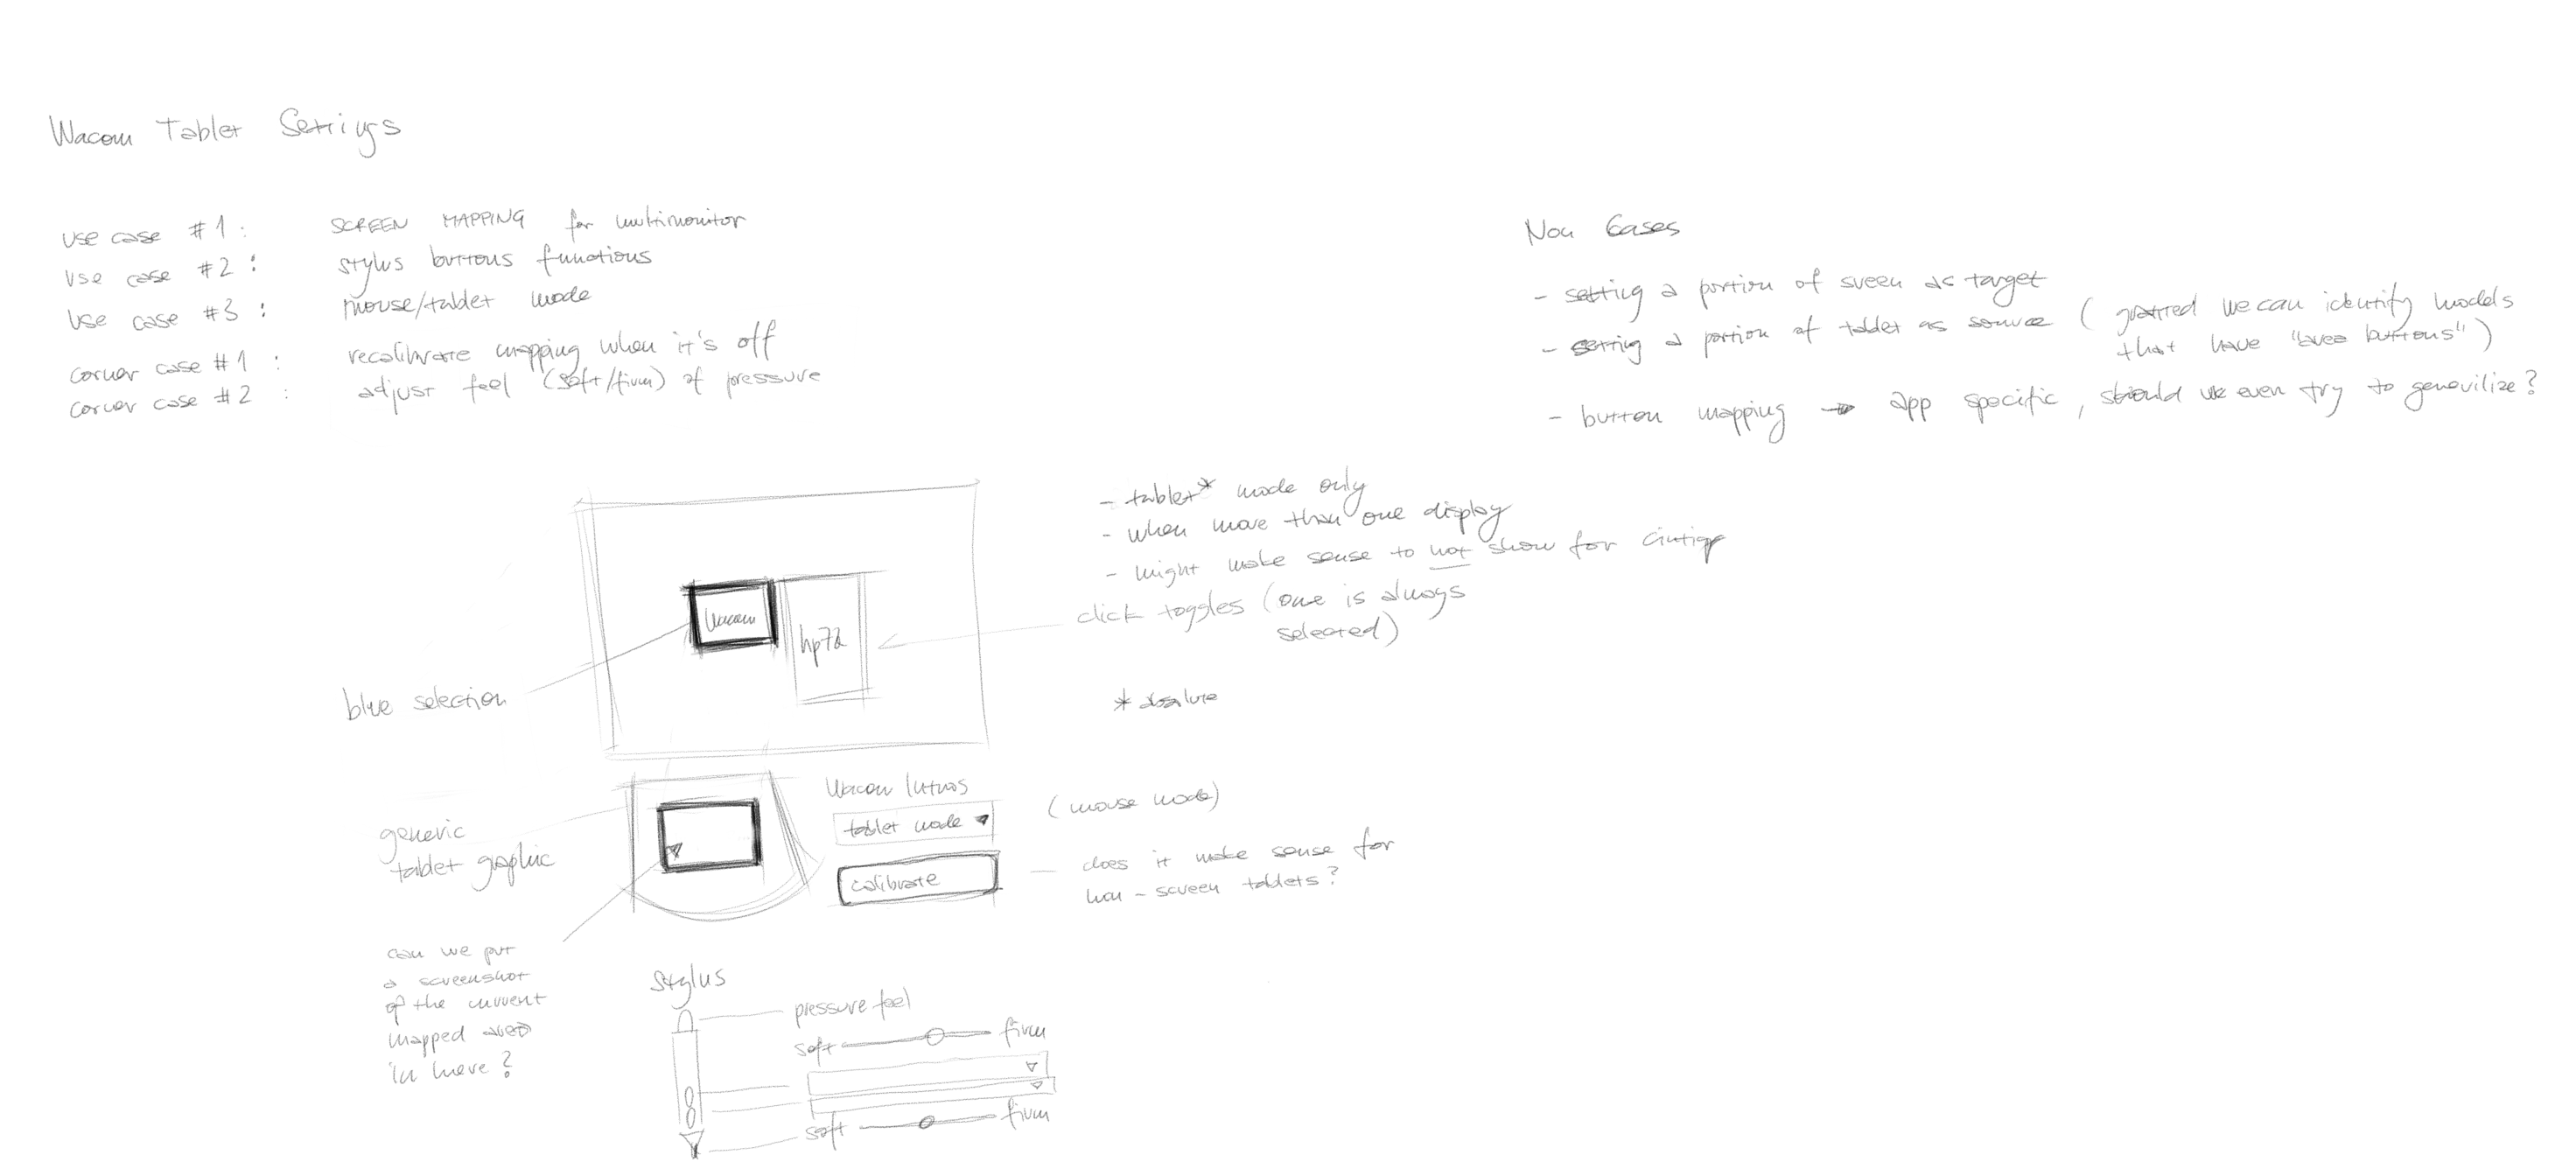 Wacom Tablet Settings
use case #1: SCREEN MAPPING for multimonitor
use case #2: stylus buttons functions
use case #3: mouse/tablet mode
corner case #1: recalibrate mapping when it's off
corner case #2: adjust feel (soft/firm) of pressure
Non Cases
- setting a portion of screen as target
- setting a portion of tablet as source (granted we can identify models
that have "area buttons")
- button mapping → app specific, should we even try to generilize?
- tablet* mode only
- when more than one display
- might make sense to not show for Cintiq
click toggles (one is always
selected)
* absolute
Wacom
blue selection
generic
tablet graphic
Wacom Intuos
tablet mode
(mouse mode)
calibrate
- does it make sense for
non-screen tablets?
can we put
a screenshot
of the current
mapped area
in here?
stylus
pressure feel
soft firm
soft firm